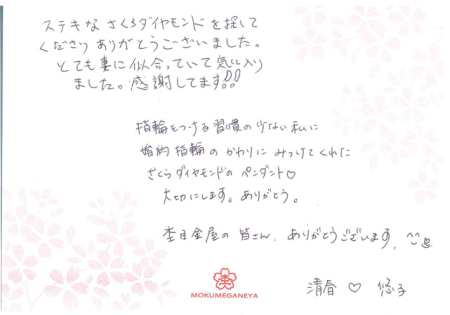 ステキな さくらダイヤモンドを探して
くださり ありがとうございました。
とても妻に似合っていて気に入り
ました。感謝してます!!
指輪をつける習慣の少ない私に
婚約指輪の かわりに みつけてくれた
さくらダイヤモンドの ペンダント♡
大切にします。ありがとう。
杢目金屋の 皆さん、ありがとうございます。^^
MOKUMEGANEYA
清春 ♡ 悠子